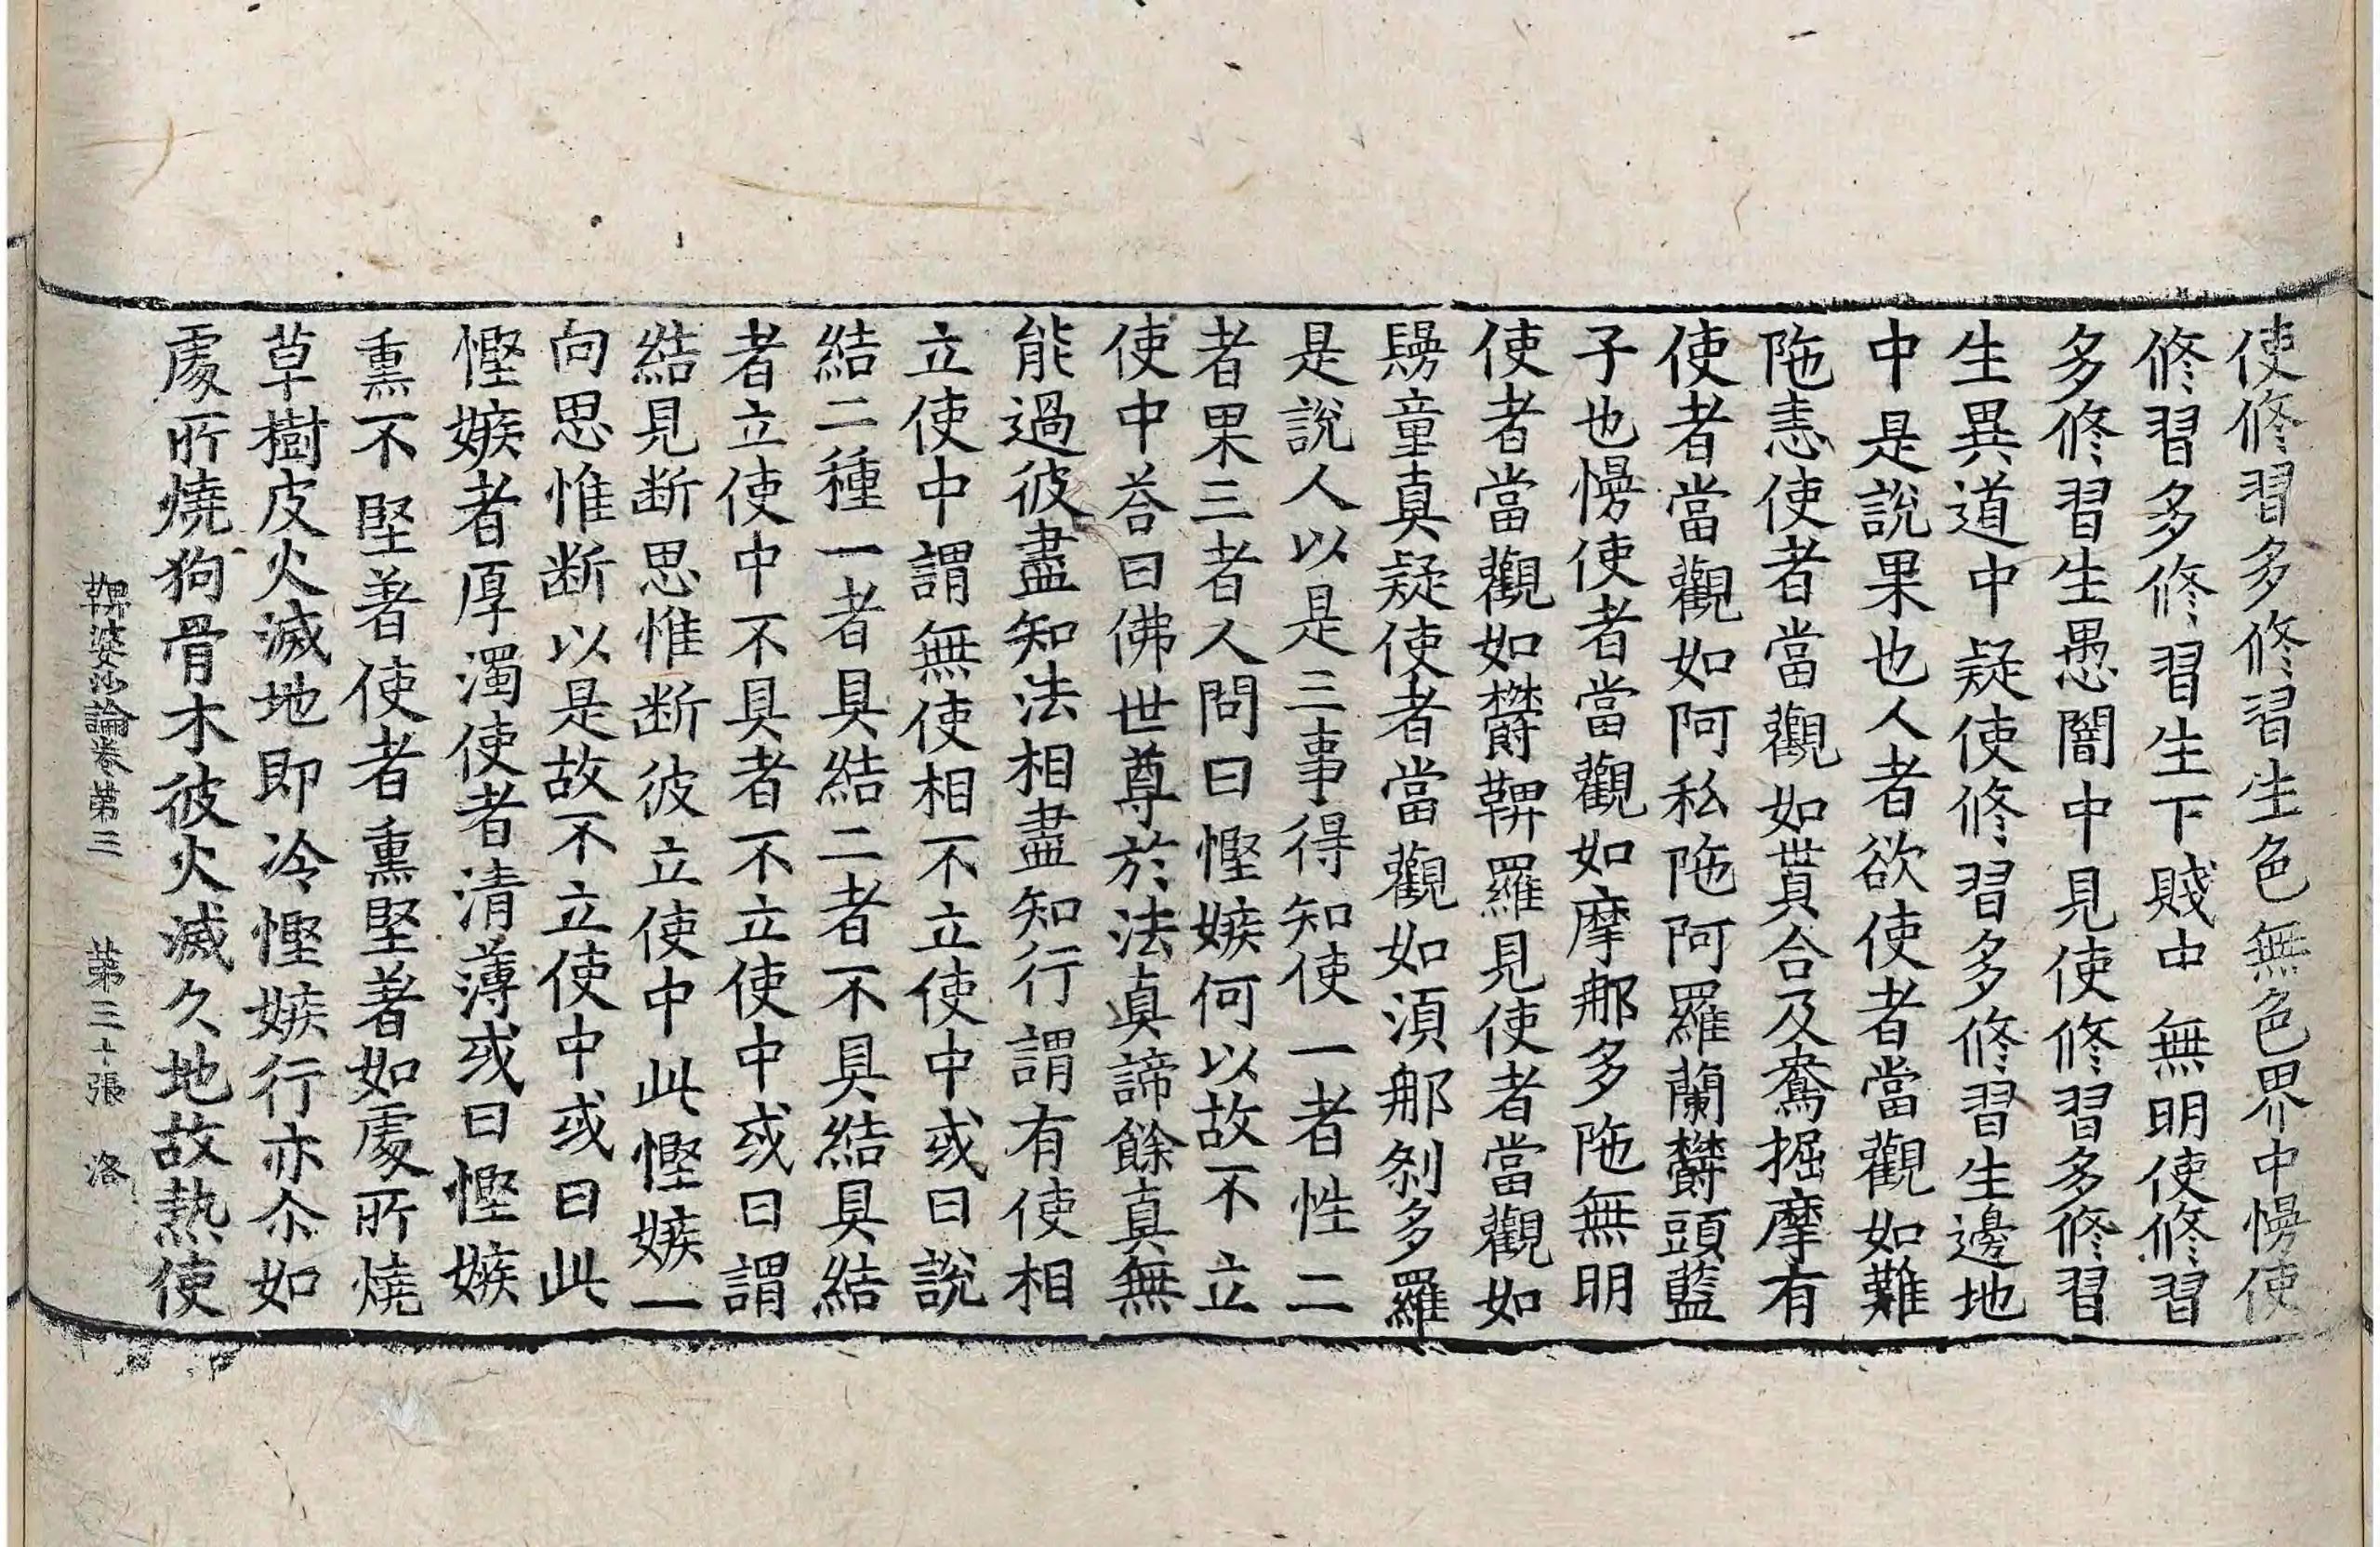 使修習多修習生色無色界中慢使
修習多修習生下賤中無明使修習
多修習生愚闇中見使修習多修習
生異道中疑使修習多修習生邊地
中是說果也人者欲使者當觀如難
陁恚使者當觀如蒖合及鴦掘摩有
使者當觀如阿私陁阿羅蘭欝頭藍
子也慢使者當觀如摩那多陁無明
使者當觀如欝鞞羅見使者當觀如
鬚童真疑使者當觀如湏那刹多羅
是說人以是三事得知使一者性二
者果三者人問曰慳嫉何以故不立
使中荅曰佛世尊於法真諦餘真無
能過彼盡知法相盡知行謂有使相
立使中謂無使相不立使中或曰說
結二種一者具結二者不具結具結
者立使中不具者不立使中或曰謂
結見断思惟断彼立使中此慳嫉一
向思惟断以是故不立使中或曰此
慳嫉者厚濁使者清薄或曰慳嫉
熏不堅著使者熏堅著如處所燒
草樹皮火滅地即冷慳嫉行亦尒如
處所燒狗骨木彼火滅久地故熱使
鞞婆沙論卷第三 第三十張 洛